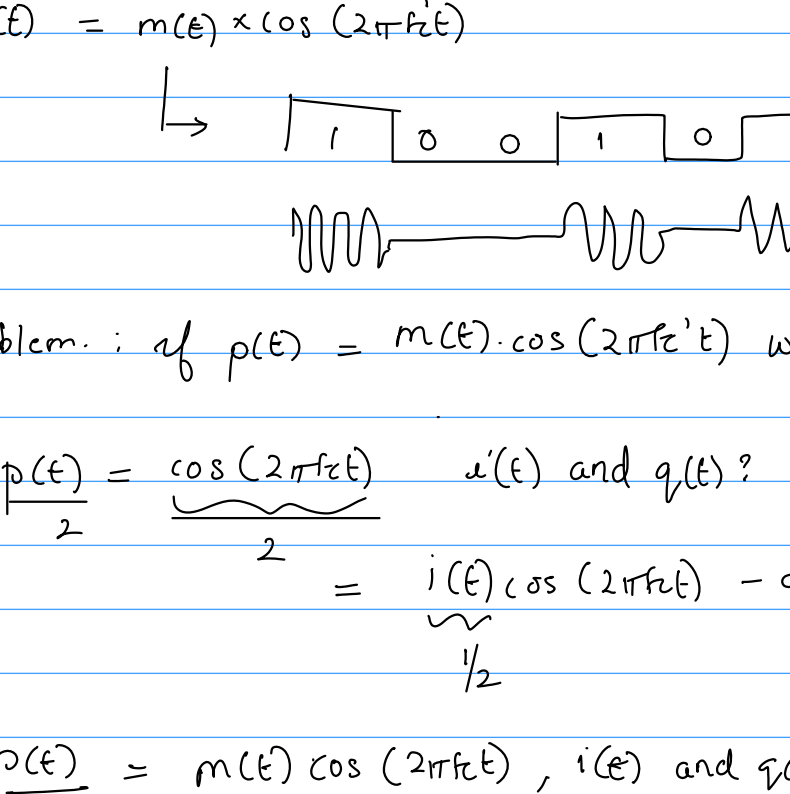 (t) = m(t) × cos (2πfc't)
1 0 0 1 0
blem. : if p(t) = m(t).cos(2πfc't) w
p(t)/2 = cos(2πfct)/2 i(t) and q(t)?
= i(t)cos(2πfct) -
1/2
p(t) = m(t) cos (2πfct), i(t) and q(